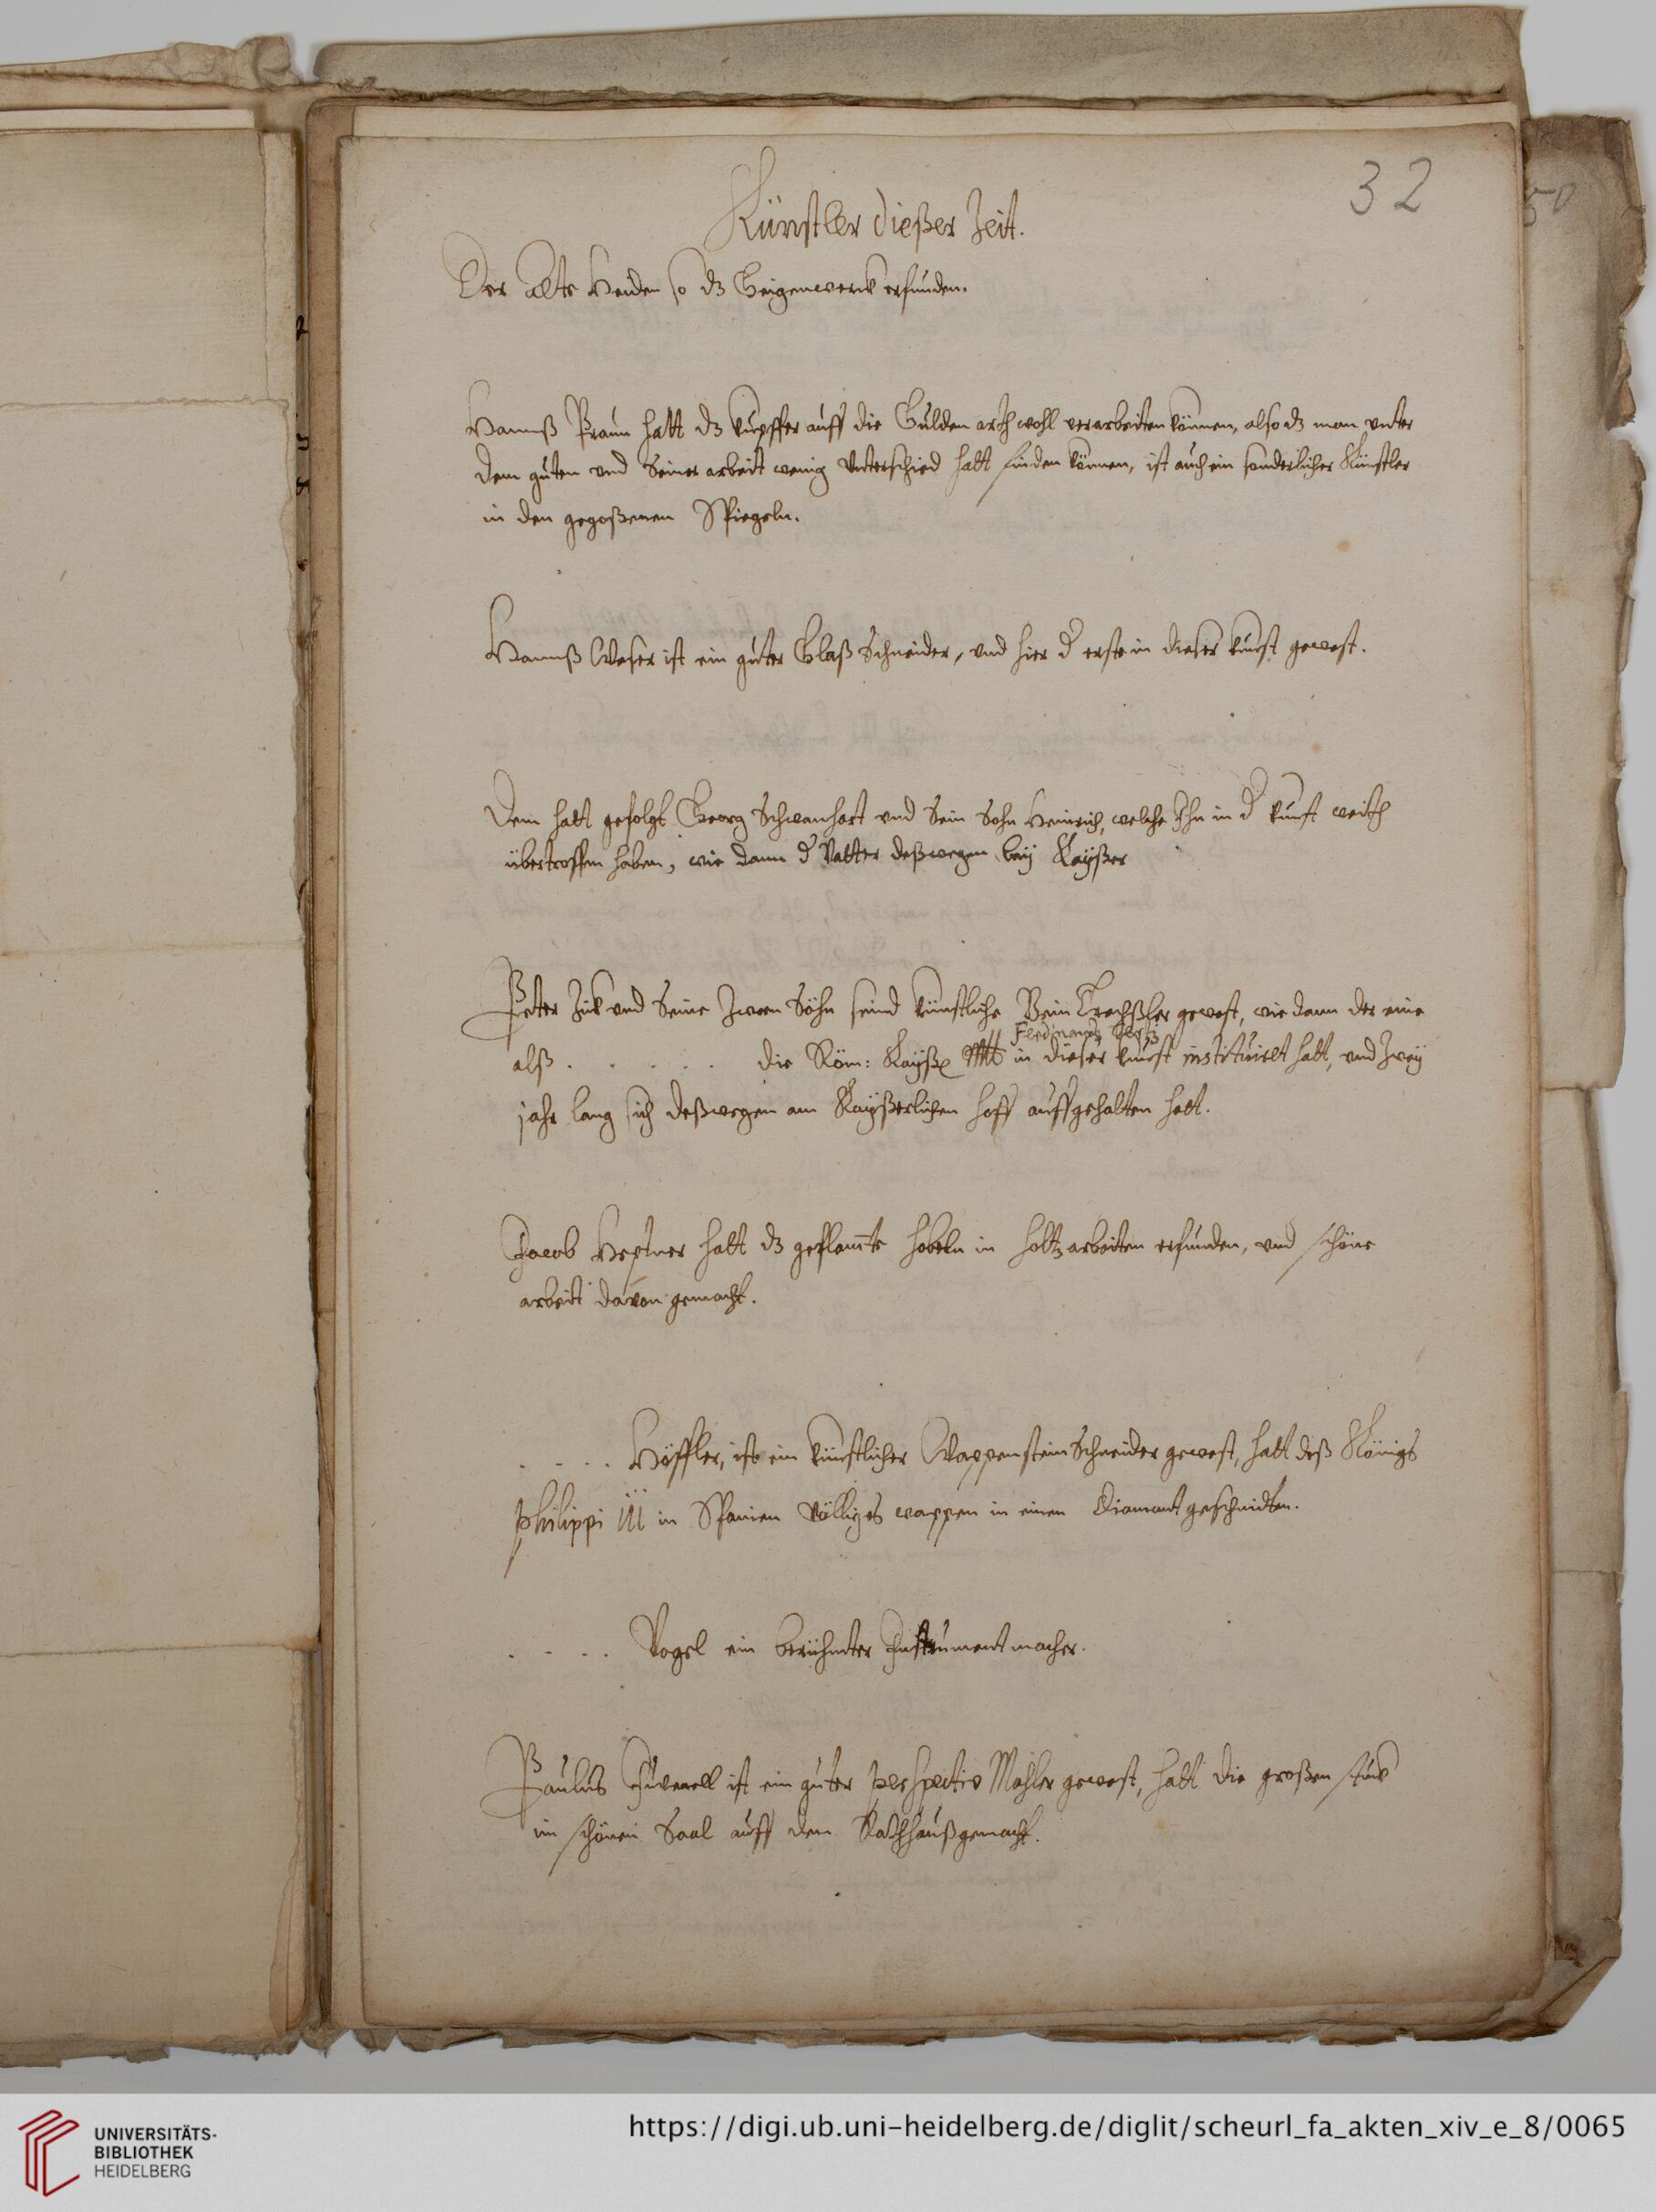 32
50
Künstler dießer Zeit.
Der alte Heiden so dz Geigenwerck erfunden.
Hannß Praun hatt dz kupffer auff die Gulden arth wohl verarbeiten können, also dz man unter
dem guten und Seiner arbeit wenig unterschied hatt finden können, ist auch ein sonderlicher Künstler
in den gegoßenen Spiegeln.
Hannß Weser ist ein guter Glaß Schneider, und hier d erste in dieser kunst gewest.
Dem hatt gefolgt Georg Schwanhart und Sein Sohn Heinrich, welche Ihn in d kunst weith
übertroffen haben, wie dann d Vatter deßwegen bey Kayßer
Peter Zick und Seine Zween Söhn seind künstliche Bein Trechßler gewest, wie dann der eine
Ferdinandi
alß . . . . . die Röm: Kayß Mtt in dieser kunst instituiret hatt, und Zwey
jahr lang sich deßwegen am Kayßerlichen hoff auffgehalten hatt.
Jacob Hepner hatt dz geflamte hobeln in holtz arbeiten erfunden, und schöne
arbeit davon gemacht.
. . . . Höffler, ist ein künstlicher Wappenstein Schneider gewest, hatt deß Königs
Philippi III in Spanien völliges wappen in einen Diamant geschnidten.
. . . . Vogel ein berühmter Instrumentmacher.
Paulus Juvenell ist ein guter perspectiv Mahler gewest, hatt die großen stuck
im schönen Saal auff dem Rathhauß gemacht.
UNIVERSITÄTS-
BIBLIOTHEK
HEIDELBERG
https://digi.ub.uni-heidelberg.de/diglit/scheurl_fa_akten_xiv_e_8/0065